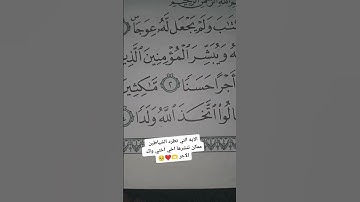 ـتَٰبَ وَلَمْ يَجْعَل لَّهُۥ عِوَجَا
ـهُ وَيُبَشِّرَ ٱلْمُؤْمِنِينَ ٱلَّذِيـ
أَجْرًا حَسَنًا ٢ مَّٰكِثِينَ
ـالُوا۟ ٱتَّخَذَ ٱللَّهُ وَلَدًا ٤
الايه التي تطرد الشياطين
ممكن تنشرها أخي أختي ولك
الأجر 🥺❤️🫶